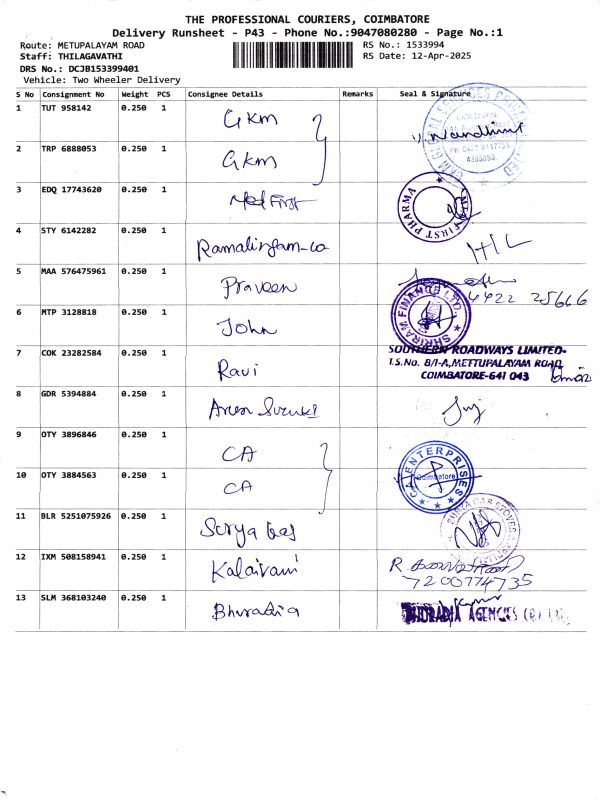 THE PROFESSIONAL COURIERS, COIMBATORE
Delivery Runsheet - P43 - Phone No.:9047080280 - Page No.:1
Route: METUPALAYAM ROAD RS No.: 1533994
Staff: THILAGAVATHI RS Date: 12-Apr-2025
DRS No.: DCJB153399401
Vehicle: Two Wheeler Delivery
S No Consignment No Weight PCS Consignee Details Remarks Seal & Signature
1 TUT 958142 0.250 1 GKM
2 TRP 6888053 0.250 1 GKM
3 EDQ 17743620 0.250 1 Med First FIRST PHARMA
4 STY 6142282 0.250 1 Ramalingam-co
5 MAA 576475961 0.250 1 Praveen 4422 25666
6 MTP 3128818 0.250 1 John SHRIRAM FINANCE LTD.
7 COK 23282584 0.250 1 Ravi SOUTHERN ROADWAYS LIMITED.
I.S.No. 8/I-A, METTUPALAYAM ROAD,
COIMBATORE-641 043
8 GDR 5394884 0.250 1 Arun Suzuki
9 OTY 3896846 0.250 1 CA
10 OTY 3884563 0.250 1 CA CA ENTERPRISES Coimbatore
11 BLR 5251075926 0.250 1 Surya Gas
12 IXM 508158941 0.250 1 Kalaivani
7200774735
13 SLM 368103240 0.250 1 Bhuradia BHURADIA AGENCIES (P) LTD.